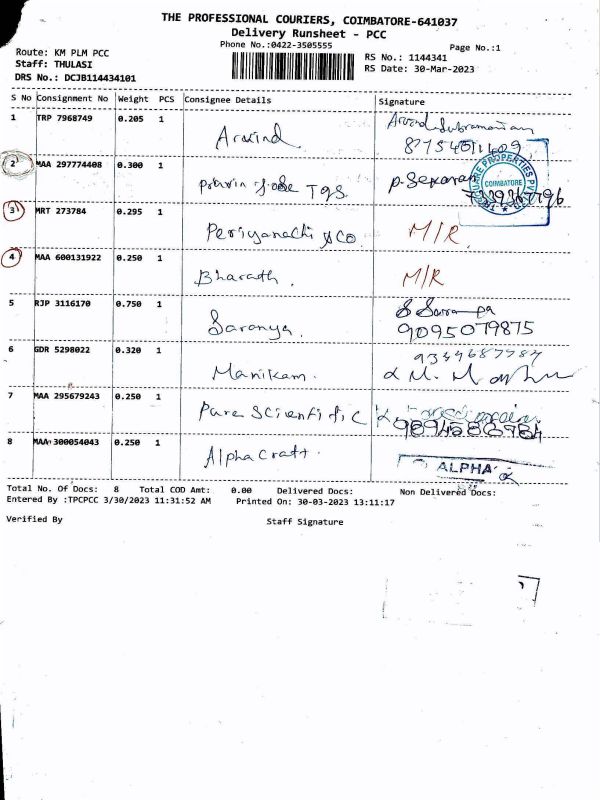 THE PROFESSIONAL COURIERS, COIMBATORE-641037
Delivery Runsheet - PCC
Phone No.:0422-3505555
Page No.:1
Route: KM PLM PCC
Staff: THULASI
DRS No.: DCJB114434101
RS No.: 1144341
RS Date: 30-Mar-2023
S No Consignment No Weight PCS Consignee Details Signature
1 TRP 7968749 0.205 1 Aravind Aravind Subramanian
2 MAA 297774408 0.300 1 P. Sekaran
PROPERTIES COIMBATORE
3 MRT 273784 0.295 1 Periyanachi & Co M/R
4 MAA 600131922 0.250 1 Bharath. M/R
5 RJP 3116170 0.750 1 Saranya.
9095079875
6 GDR 5298022 0.320 1 Manikam.
7 MAA 295679243 0.250 1 Pure Scientific
8 MAA 300054043 0.250 1 Alpha Craft. ALPHA
Total No. Of Docs: 8 Total COD Amt: 0.00 Delivered Docs: Non Delivered Docs:
Entered By :TPCPCC 3/30/2023 11:31:52 AM Printed On: 30-03-2023 13:11:17
Verified By Staff Signature